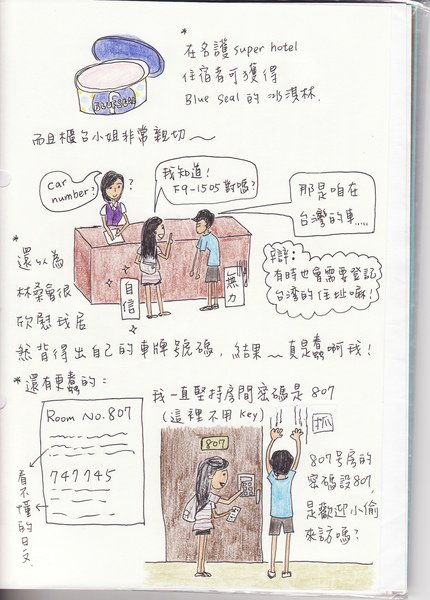 *
在名護 super hotel
住宿者可獲得
Blue Seal 的冰淇淋.
BLUE SEAL
而且櫃台小姐非常親切～
car number?
?
我知道!
F9-1505 對嗎?
那是咱在
台灣的車.....
辯:
有時也會需要登記
台灣的住址嘛!
自信
無力
*
還以為
林桑會很
欣慰我居
然背得出自己的車牌號碼, 結果～真是蠢啊我!
*還有更蠢的:
Room No. 807
747745
看不懂的日文
我一直堅持房間密碼是 807
(這裡不用 key)
807
抓
807号房的
密碼設807,
是歡迎小偷
來訪嗎?